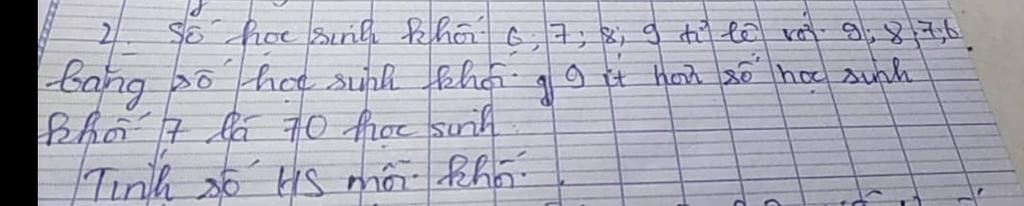 2. Số học sinh khối 6; 7; 8; 9 tỉ lệ với 9; 8; 7; 6
bằng số học sinh khối 9 ít hơn số học sinh
khối 7 là 70 học sinh.
Tính số HS mỗi khối.